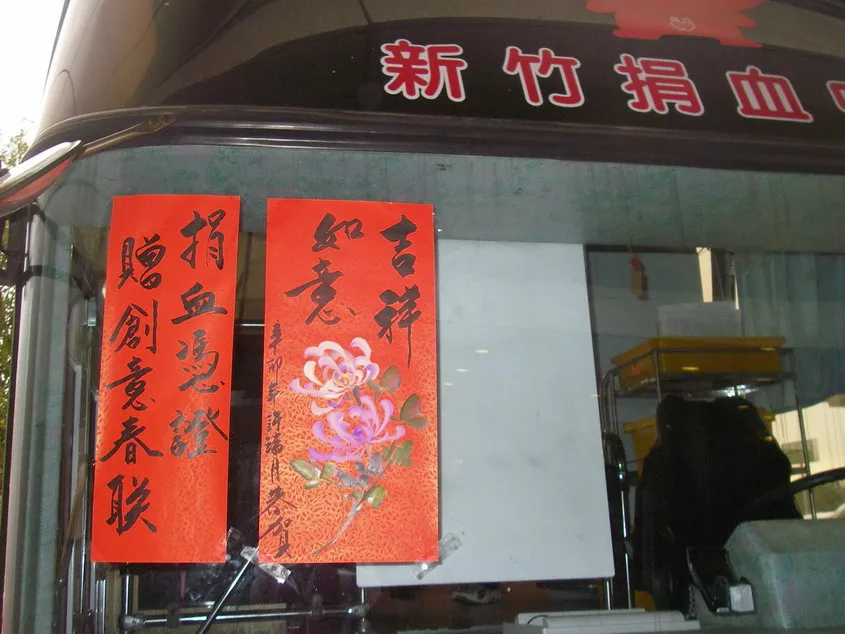 新竹捐血
捐血憑證
贈創意春联
吉祥
如意
辛卯年許瑞月恭賀